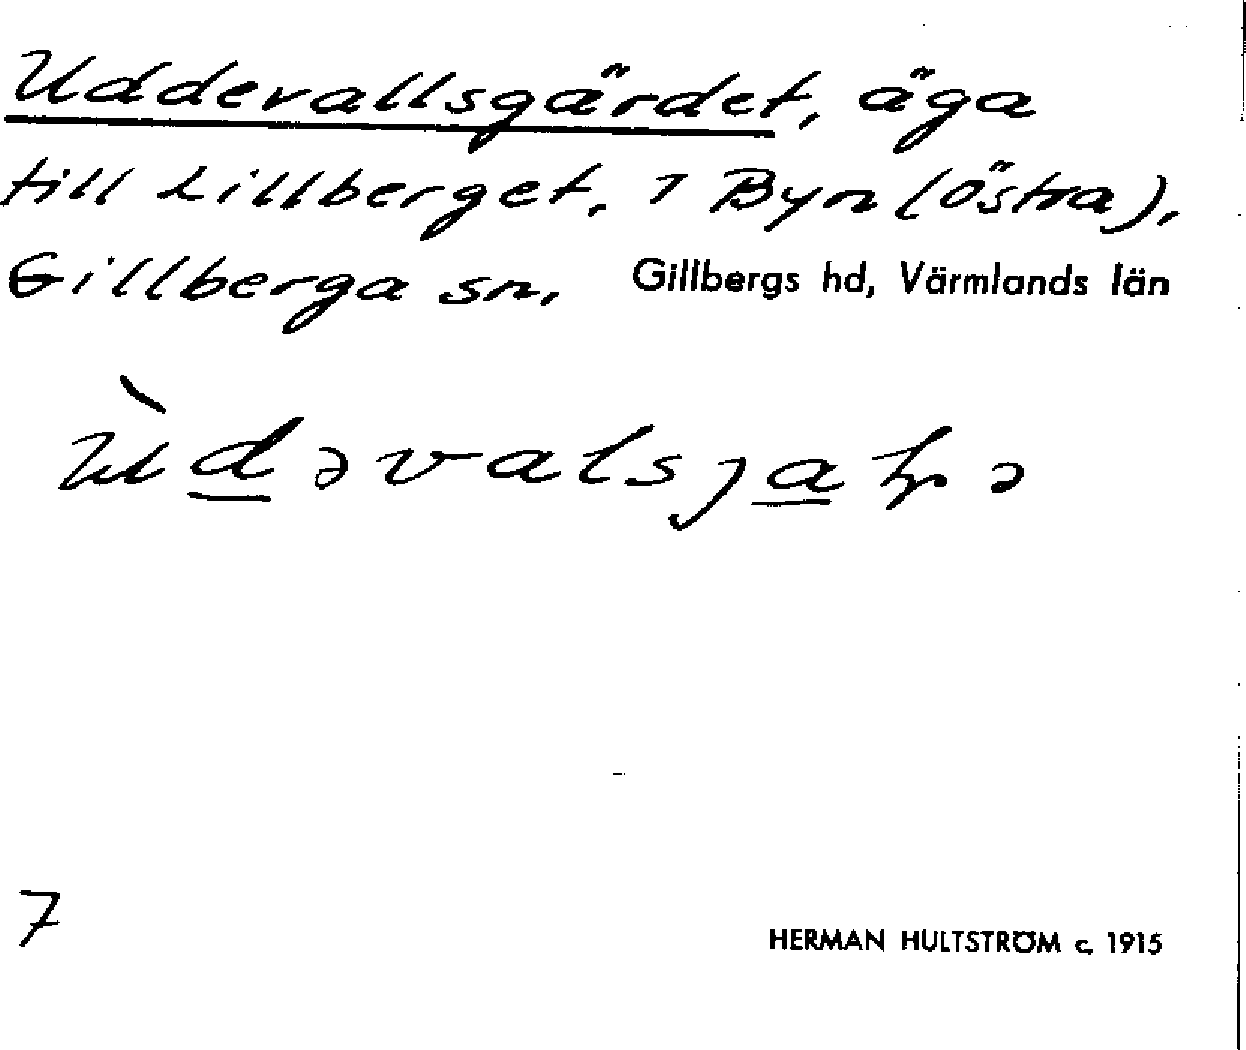 Uddevallsgärdet, äga
till Lillberget, 1 Byn (Östra),
Gillberga sn, Gillbergs hd, Värmlands län
7
HERMAN HULTSTRÖM c. 1915